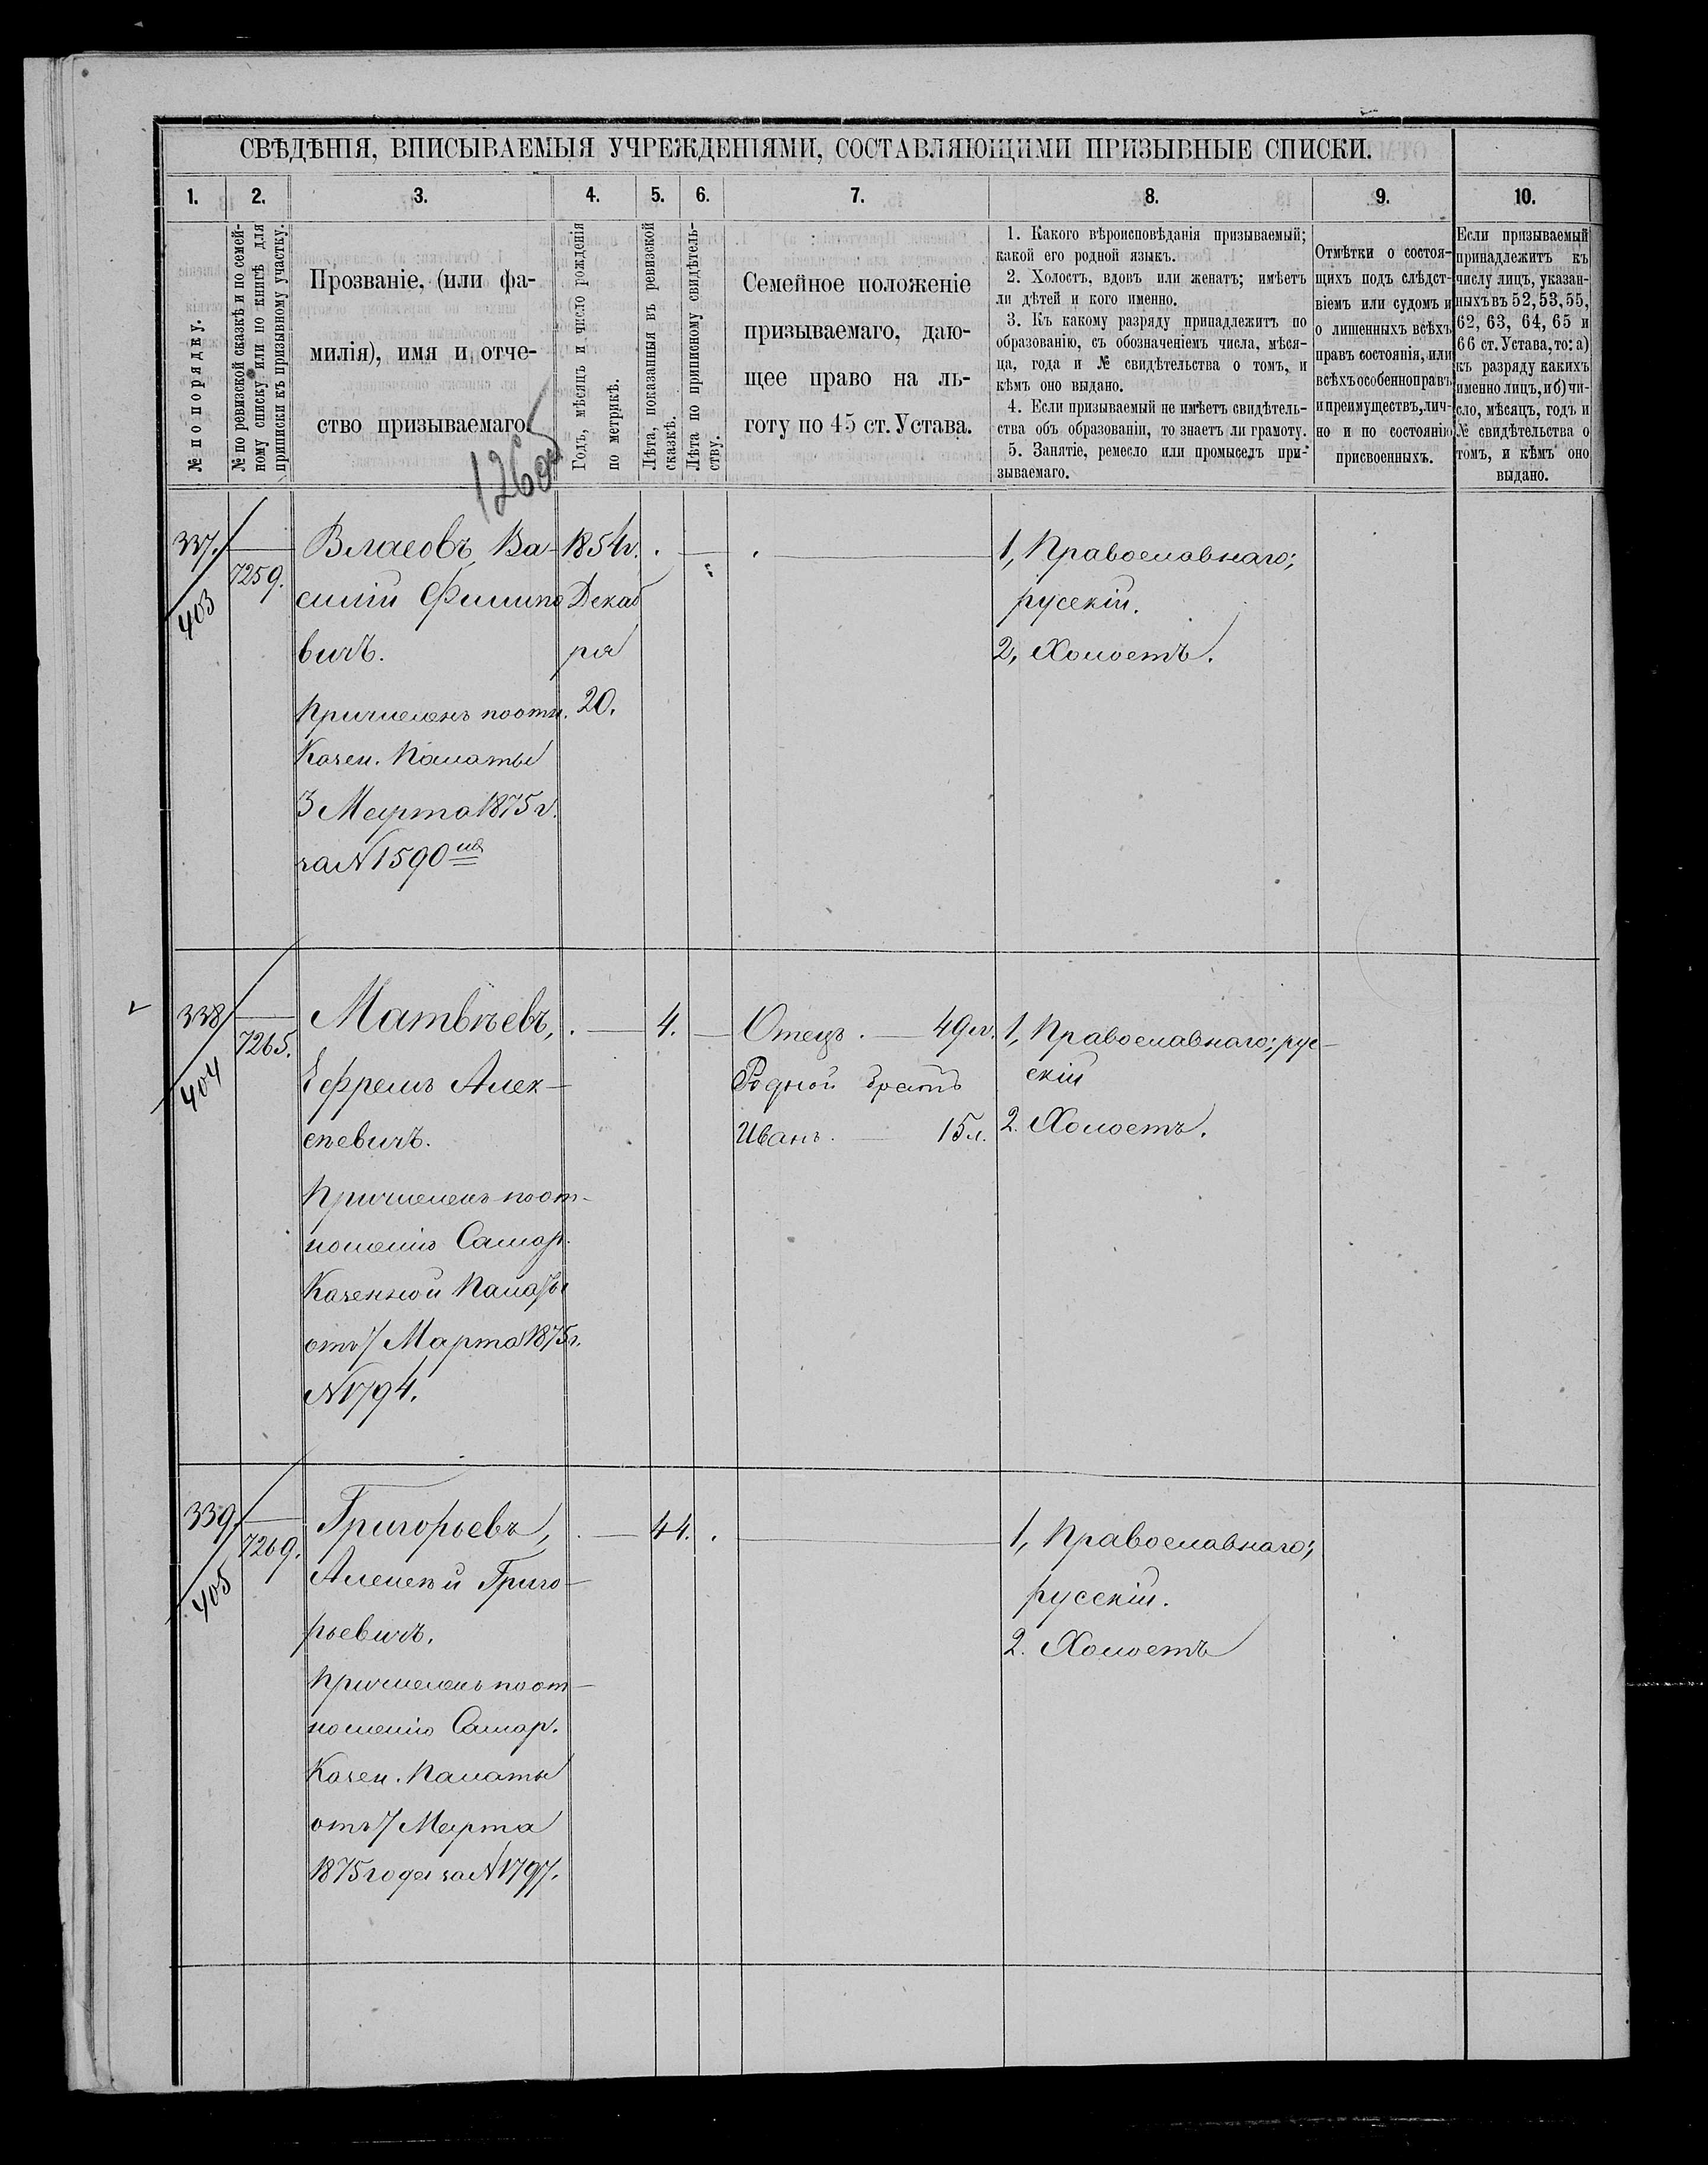 СВѢДѢНІЯ, ВПИСЫВАЕМЫЯ УЧРЕЖДЕНІЯМИ, СОСТАВЛЯЮЩИМИ ПРИЗЫВНЫЕ СПИСКИ.
1.
2.
3.
4.
5.
6.
7.
8.
9.
10.
№ по порядку.
№ по ревизской сказкѣ и по семей-
ному списку или по книгѣ для
приписки къ призывному участку.
Прозваніе, (или фа-
милія), имя и отче-
ство призываемаго.
Годъ, мѣсяцъ и число рожденія
по метрикѣ.
Лѣта, показанныя въ ревизской
сказкѣ.
Лѣта по приписному свидѣтель-
ству.
Семейное положеніе
призываемаго, даю-
щее право на ль-
готу по 45 ст. Устава.
1. Какого вѣроисповѣданія призываемый;
какой его родной языкъ.
2. Холостъ, вдовъ или женатъ; имѣетъ
ли дѣтей и кого именно.
3. Къ какому разряду принадлежитъ по
образованію, съ обозначеніемъ числа, мѣся-
ца, года и № свидѣтельства о томъ, и
кѣмъ оно выдано.
4. Если призываемый не имѣетъ свидѣтель-
ства объ образованіи, то знаетъ ли грамоту.
5. Занятіе, ремесло или промыселъ при-
зываемаго.
Отмѣтки о состоя-
щихъ подъ слѣдст-
віемъ или судомъ и
о лишенныхъ всѣхъ
правъ состоянія, или
всѣхъ особенно правъ
и преимуществъ, лич-
но и по состоянію
присвоенныхъ.
Если призываемый
принадлежитъ къ
числу лицъ, указан-
ныхъ въ 52, 53, 55,
62, 63, 64, 65 и
66 ст. Устава, то: а)
къ разряду какихъ
именно лицъ, и б) чи-
сло, мѣсяцъ, годъ и
№ свидѣтельства о
томъ, и кѣмъ оно
выдано.
337.
403
7259.
Власовъ, Ва-
силій Филипо
вичъ.
Причисленъ по отн.
Казен. Палаты
3 Марта 1875 г.
за № 1590
1854 г.
Декаб
ря
20.
1, Православнаго;
русскій.
2, Холостъ.
338
404
7265.
Матвѣевъ,
Ефремъ Алек-
сѣевичъ.
Причисленъ по от-
ношенію Самар.
Казенной Палаты
отъ 7 Марта 1875 г.
№ 1794.
4.
Отецъ. — 49 л.
Родной братъ
Иванъ. — 15 л.
1, Православнаго; рус-
скій
2. Холостъ.
339.
405
7269.
Григорьевъ,
Алексѣй Григо-
рьевичъ.
Причисленъ по от-
ношенію Самар.
Казен. Палаты
отъ 7 Марта
1875 года за № 1797.
1, Православнаго;
русскій.
2. Холостъ